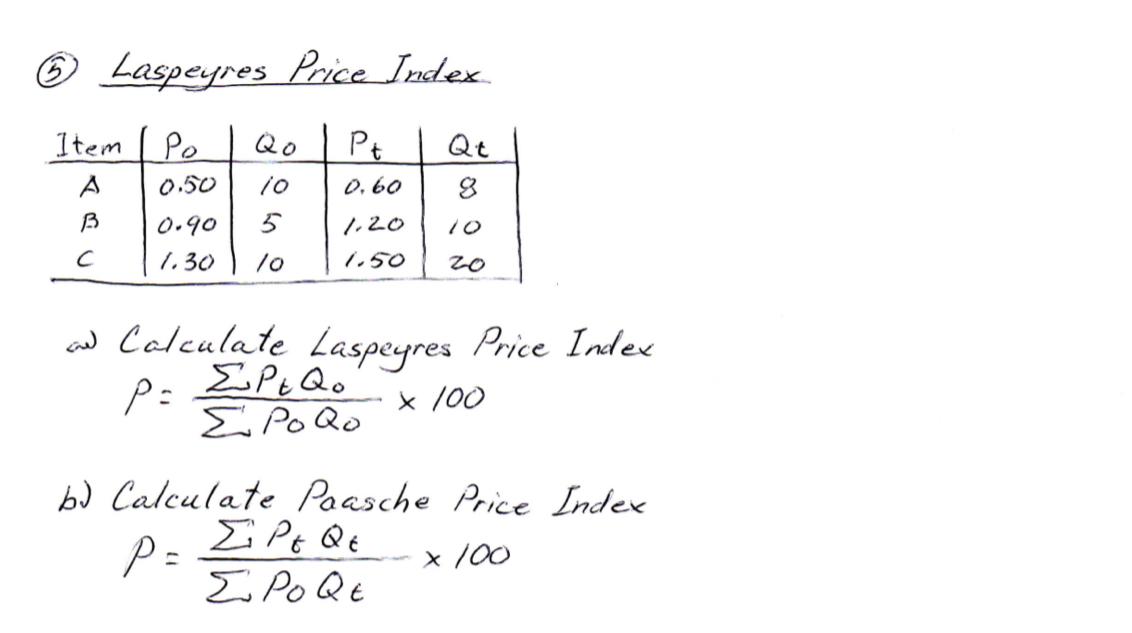 ⑤ Laspeyres Price Index
Item | Po | Qo | Pt | Qt
A | 0.50 | 10 | 0.60 | 8
B | 0.90 | 5 | 1.20 | 10
C | 1.30 | 10 | 1.50 | 20
a) Calculate Laspeyres Price Index
P = ΣPtQo / ΣPoQo × 100
b) Calculate Paasche Price Index
P = ΣPtQt / ΣPoQt × 100